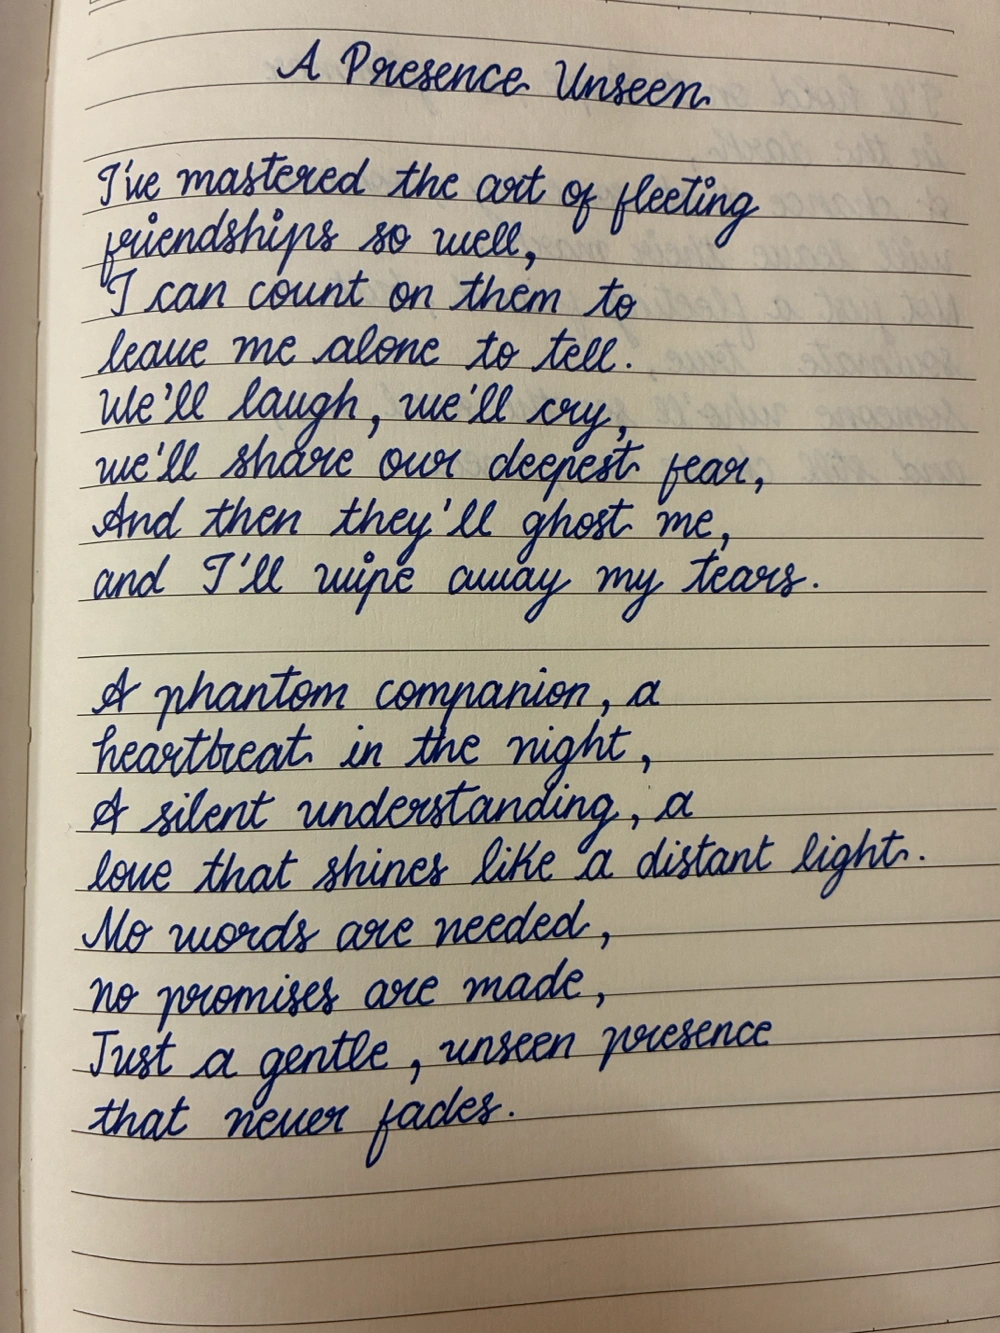 A Presence Unseen
I've mastered the art of fleeting
friendships so well,
I can count on them to
leave me alone to tell.
We'll laugh, we'll cry,
we'll share our deepest fear,
And then they'll ghost me,
and I'll wipe away my tears.
A phantom companion, a
heartbeat in the night,
A silent understanding, a
love that shines like a distant light.
No words are needed,
no promises are made,
Just a gentle, unseen presence
that never fades.